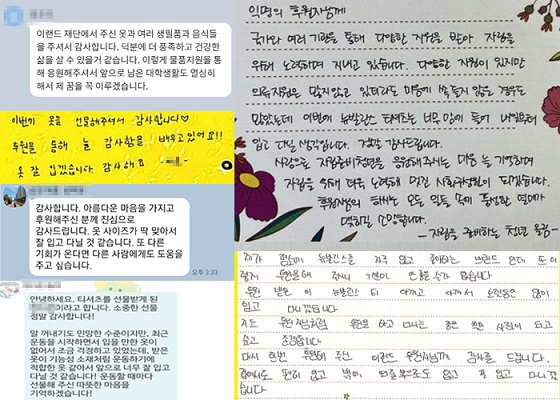 이랜드 재단에서 주신 옷과 여러 생필품과 음식들
을 주셔서 감사합니다. 덕분에 더 풍족하고 건강한
삶을 살 수 있을거 같습니다. 이렇게 물품지원을 통
해 응원해주셔서 앞으로 남은 대학생활도 열심히
해서 제 꿈을 꼭 이루겠습니다.
이번에 옷을 선물해주셔서 감사합니다♡
후원을 통해 늘 감사함을 배우고 있어요!!
옷 잘 입겠습니다. 감사해요
감사합니다. 아름다운 마음을 가지고
후원해주신 분께 진심으로
감사드립니다. 옷 사이즈가 딱 맞아서
잘 입고 다닐 것 같습니다. 또 다른
기회가 온다면 다른 사람에게도 도움을
주고 싶습니다.
오후 3:33
안녕하세요, 티셔츠를 선물받게 된
이라고 합니다. 소중한 선물
정말 감사합니다!
말 꺼내기도 민망한 수준이지만, 최근
운동을 시작하면서 입을 만한 옷이
없어서 조금 걱정하고 있었는데, 받은
옷이 기능성 소재처럼 운동하기에
적합한 옷 같아서 앞으로 너무 잘 입고
다닐 것 같습니다! 운동할 때마다
선물해 주신 따뜻한 마음을
기억하겠습니다!
익명의 후원자님께
국가와 여러 기관을 통해 다양한 지원을 받아 자립을
위해 노력하며 지내고 있습니다. 다양한 지원이 있지만
의류지원은 많지않고 있더라도 마음에 쏙 들지 않을 경우도
있었는데 이번에 뉴발란스 티셔츠는 너무 맘에 들어 내일부터
입고 다닐 생각입니다. 정말 감사드립니다.
사랑으로 자립준비청년을 응원해주시는 마음 늘 기억하며
자립을 위해 더욱 노력해 멋진 사회구성원이 되겠습니다.
후원자님의 하시는 모든 일들 속에 풍성한 열매가
맺히길 소망합니다.
- 자립을 준비하는 청년 올림 -
제가 평소에 뉴발란스를 자주 입고 좋아하는 브랜드 인데 또 이
렇게 후원을해 주시니 기분이 안 좋을 수가 없습니다
후원 받은 이 뉴발란스 티 아끼고 아껴서 오랫동안 많이
입고 다니겠습니다
저도 후원자님처럼 후원을 하고 다니는 좋은 사람이 되고
싶고
다시 한번 후원해 주신 이랜드 후원자님께 감사를 드립니다.
집에서도 편히 입고 밖에 외출용으로도 입고 잘 입고 다니겠
습니다